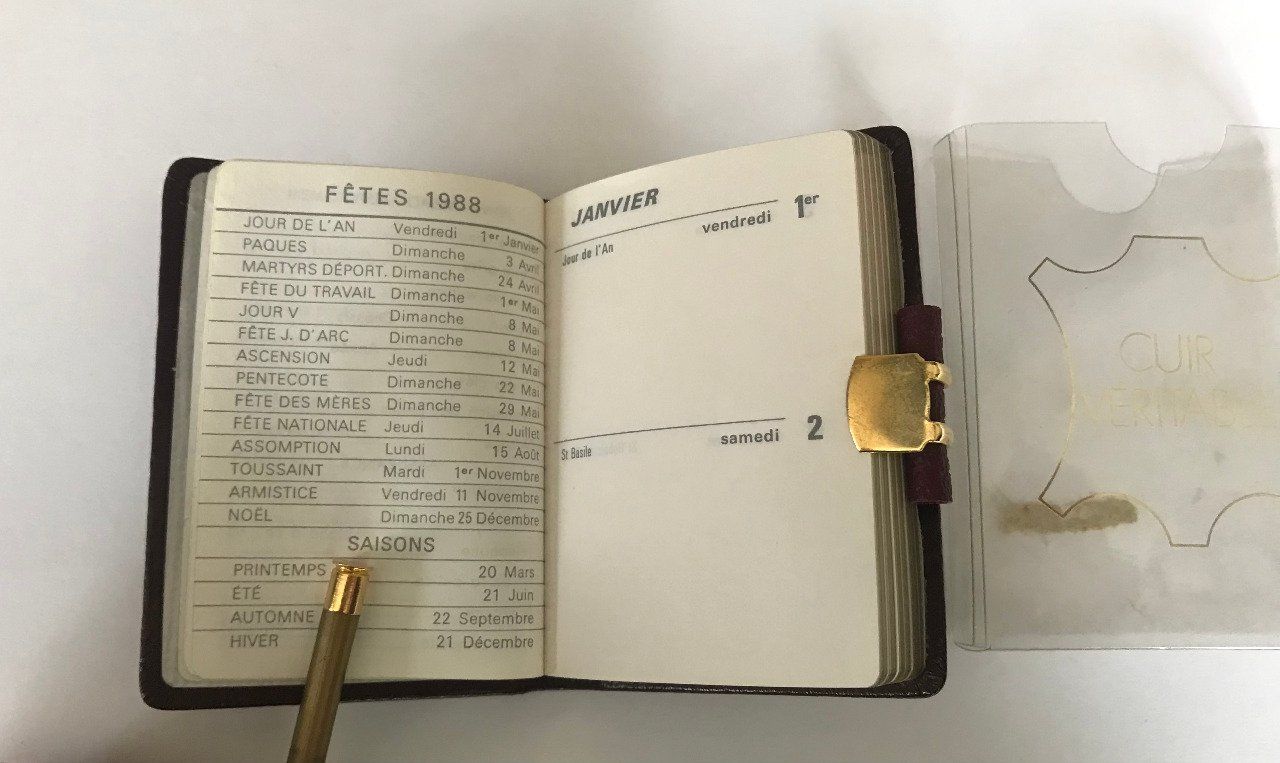 FÊTES 1988
JOUR DE L'AN Vendredi 1er Janvier
PAQUES Dimanche 3 Avril
MARTYRS DÉPORT. Dimanche 24 Avril
FÊTE DU TRAVAIL Dimanche 1er Mai
JOUR V Dimanche 8 Mai
FÊTE J. D'ARC Dimanche 8 Mai
ASCENSION Jeudi 12 Mai
PENTECOTE Dimanche 22 Mai
FÊTE DES MÈRES Dimanche 29 Mai
FÊTE NATIONALE Jeudi 14 Juillet
ASSOMPTION Lundi 15 Août
TOUSSAINT Mardi 1er Novembre
ARMISTICE Vendredi 11 Novembre
NOËL Dimanche 25 Décembre
SAISONS
PRINTEMPS 20 Mars
ÉTÉ 21 Juin
AUTOMNE 22 Septembre
HIVER 21 Décembre
JANVIER
vendredi 1er
Jour de l'An
samedi 2
St Basile
CUIR
VÉRITABLE